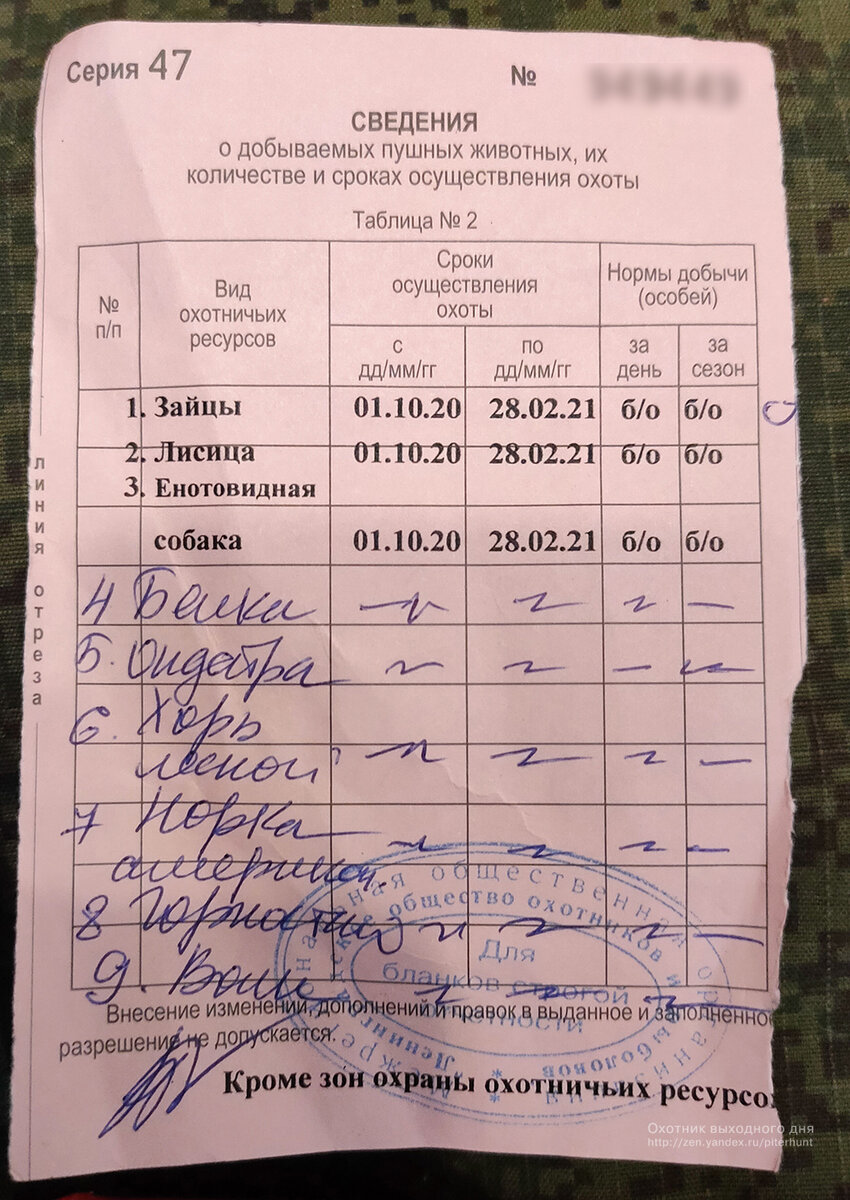 Серия 47 №
СВЕДЕНИЯ
о добываемых пушных животных, их
количестве и сроках осуществления охоты
Таблица № 2
№ п/п
Вид охотничьих ресурсов
Сроки осуществления охоты
Нормы добычи (особей)
с дд/мм/гг
по дд/мм/гг
за день
за сезон
1. Зайцы 01.10.20 28.02.21 б/о б/о
2. Лисица 01.10.20 28.02.21 б/о б/о
3. Енотовидная
собака 01.10.20 28.02.21 б/о б/о
4 Белка
5. Ондатра
6. Хорь
лесной
7 Норка
американ.
8 Горностай
9. Волк
линия отреза
Внесение изменений, дополнений и правок в выданное и заполненно
разрешение не допускается.
Кроме зон охраны охотничьих ресурсо
общественная организация
общество охотников и рыболовов
Для
бланков строгой
отчетности
Охотник выходного дня
http://zen.yandex.ru/piterhunt